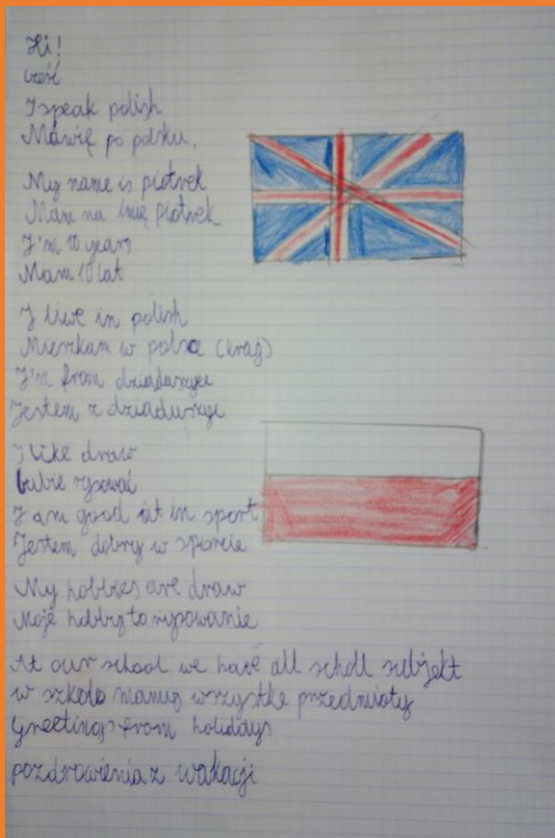 Hi!
Cześć
I speak polish
Mówię po polsku.
My name is piotrek
Mam na imię piotrek
I'm 10 years
Mam 10 lat
I liwe in polish
Mieszkam w polsce (kraj)
I'm from dziaduszyce
Jestem z dziaduszyc
I like draw
Lubie rysować
I am good at in sport
Jestem dobry w sporcie
My hobbies are draw
Moje hobby to rysowanie
At our school we have all scholl subjekt
w szkole mamy wszystke przedmioty
Greetings from holidays
pozdrowienia z wakacji